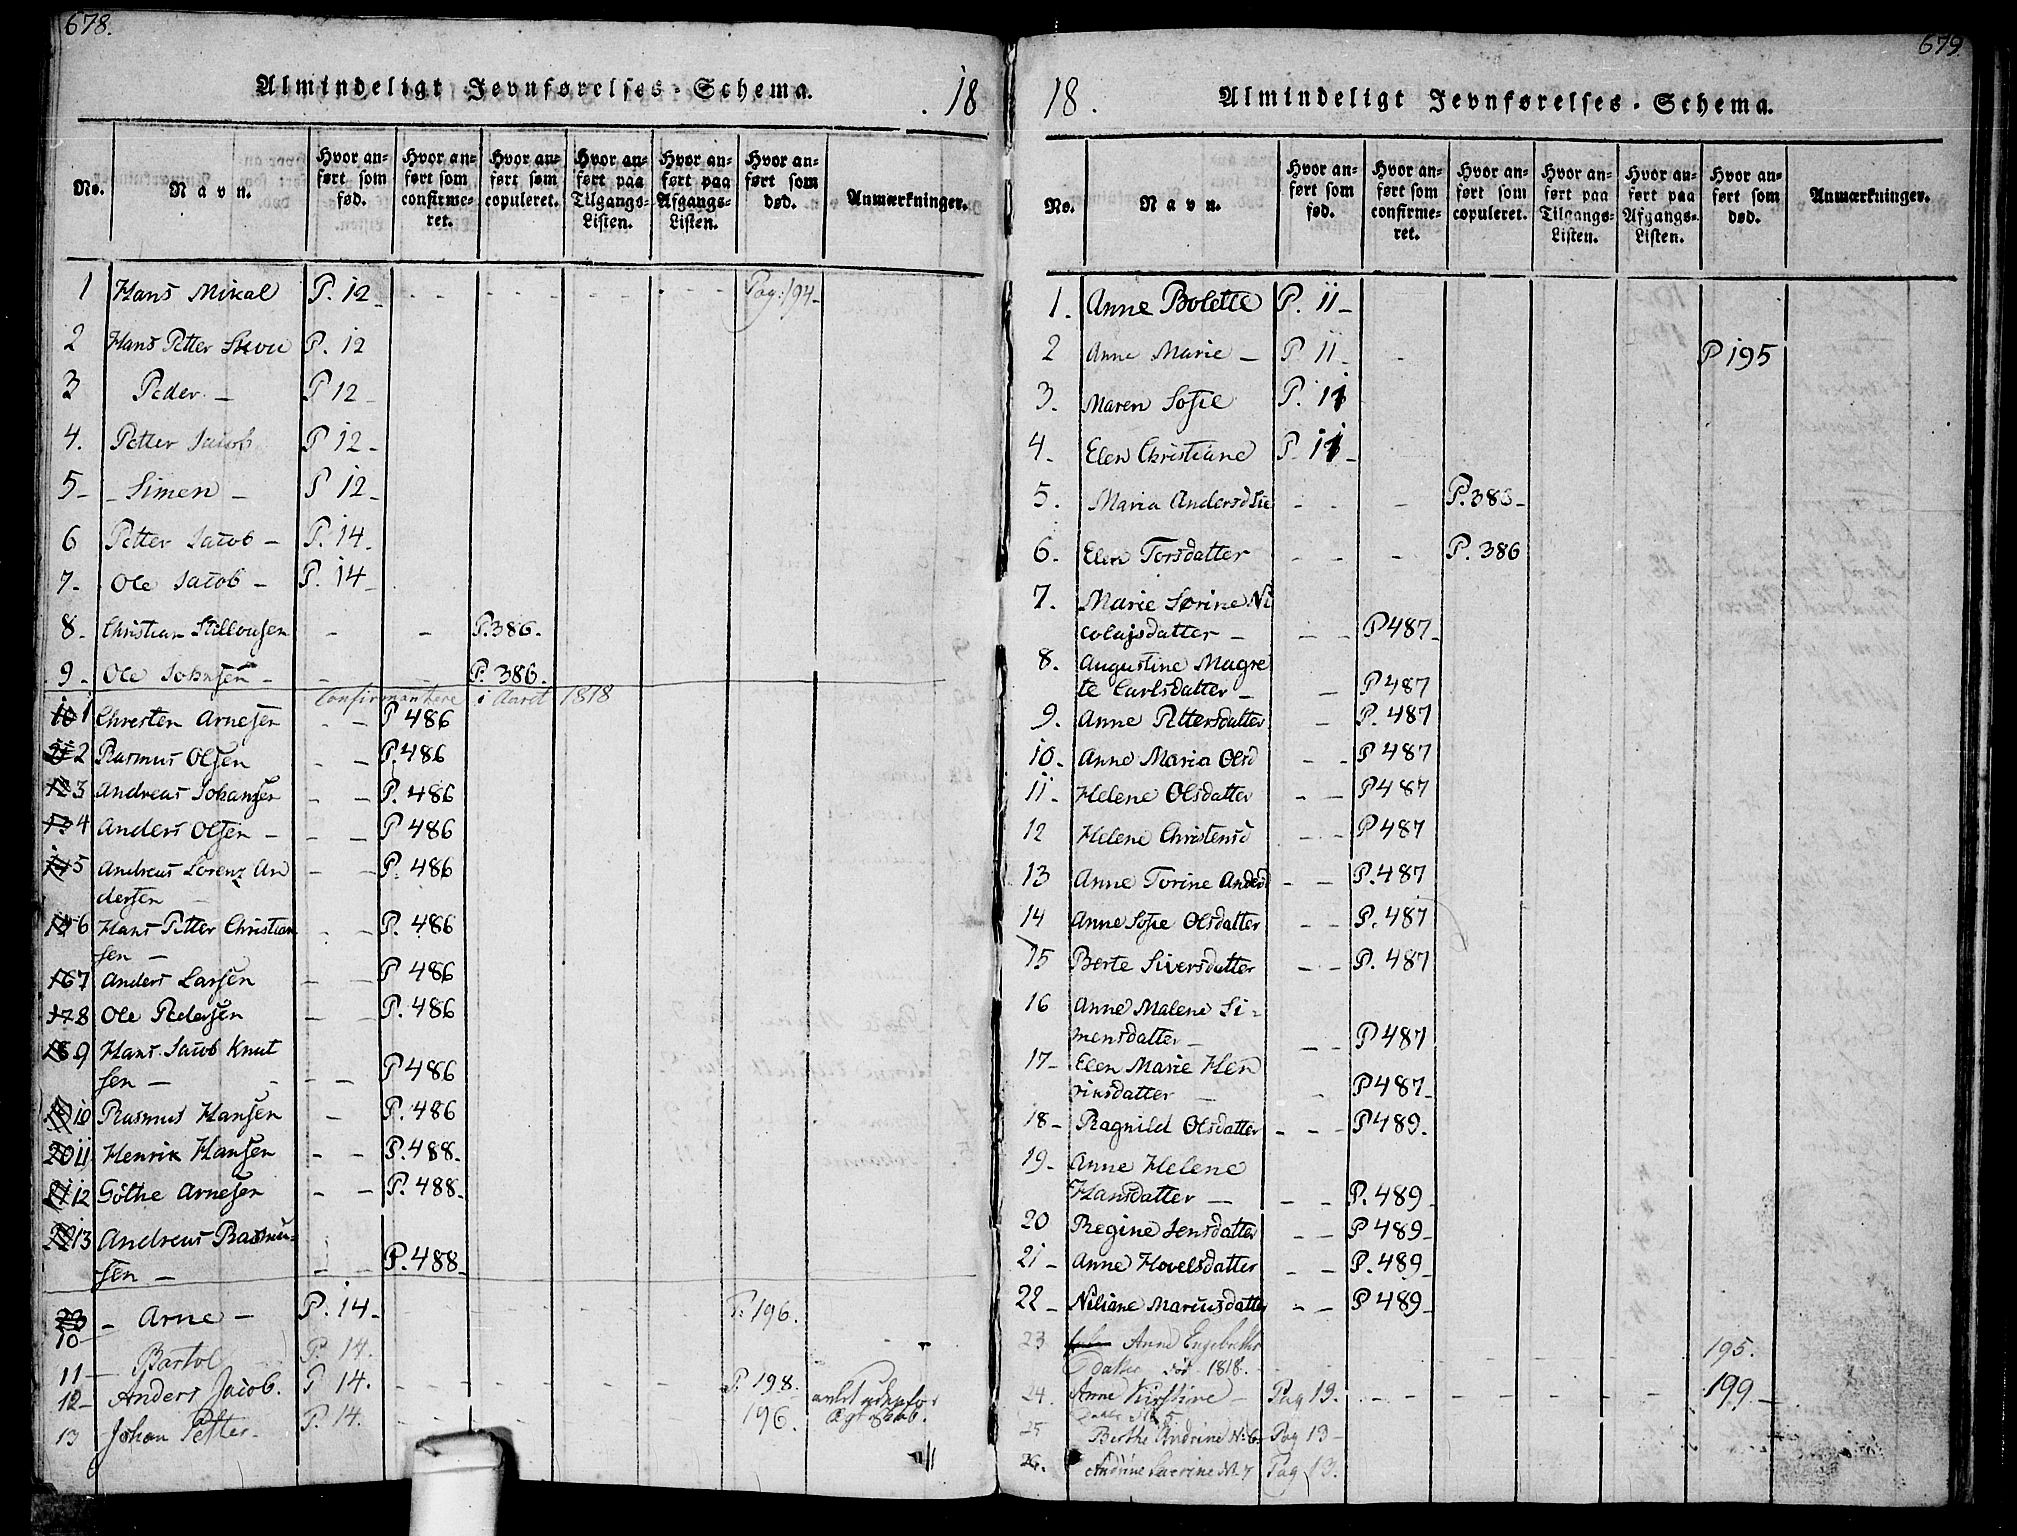 678.
Almindeligt Jevnførelses-Schema.
18
No.
Navn.
Hvor anført som fød.
Hvor anført som confirmeret.
Hvor anført som copuleret.
Hvor anført paa Tilgangs-Listen.
Hvor anført paa Afgangs-Listen.
Hvor anført som død.
Anmærkninger.
1 Hans Mikal P. 12 - Pag: 194-
2 Hans Petter P. 12
3 Peder - P 12 -
4. Petter Jacob P 12 -
5 - Simen - P 12 -
6 Petter Jacob - P. 14 -
7 - Ole Jacob - P. 14 -
8 - Christian Stillousen - - P. 386 -
9 - Ole Johnsen - - - P. 386 -
Confirmantere i Aaret 1818
10 1 Christen Arnesen - - P 486
11 2 Rasmus Olsen - - P. 486
12 3 Andreas Johansen - - P. 486
13 4 Anders Olsen - - - P 486
14 5 Andreas Lorenz An - - P. 486
dersen -
15 6 Hans Petter Christian - - P. 486
sen -
16 7 Anders Larsen - - P 486
17 8 Ole Pedersen - - P. 486
18 9 Hans Jacob Knut
sen - - - P 486
19 10 Rasmus Hansen - P. 486
20 11 Henrik Hansen - - P. 488 -
21 12 Göthe Arnesen - - P. 488 -
22 13 Andreas Rasmu-
sen - - - P. 488 -
23 - Arne - P. 14 - P. 196.
10
11 - Bartol P. 14.
12 - Anders Jacob. P 14. - P. 198.
13 Johan Petter - P. 14. 196.
679.
18.
Almindeligt Jevnførelses-Schema.
No.
Navn.
Hvor anført som fød.
Hvor anført som confirmeret.
Hvor anført som copuleret.
Hvor anført paa Tilgangs-Listen.
Hvor anført paa Afgangs-Listen.
Hvor anført som død.
Anmærkninger.
1. Anne Bolette P. 11 -
2 Anne Marie - P. 11 - P 195
3. Maren Sofie P. 11
4 - Elen Christiane P. 11 -
5. Maria Andersd - - - P. 386 -
6. Elen Torsdatter - - - P. 386
7. Marie Sørine Ni
colajsdatter - - - P 487 -
8. Augustine Magre
te Carlsdatter - - P 487
9. Anne Pettersdatter - P. 487
10 - Anne Maria Olsd - - P 487
11 - Helene Olsdatter - - P 487
12 Helene Christensd - - P 487
13 Anne Torine Andersd - - P. 487
14 Anne Sofie Olsdatter - - P. 487
15 Berte Siversdatter - - P. 487
16 Anne Malene Si-
mensdatter - - - P 487
17 - Elen Marie Hen
riksdatter - - P 487 -
18 - Ragnild Olsdatter - - - P 489 -
19 - Anne Helene
Hansdatter - - - P. 489 -
20 Regine Jensdatter - - P 489 -
21 - Anne Hovelsdatter - - P. 489 -
22 - Niliane Mariusdatter - - P 489 -
23 Anne Engebrets
Datter død 1818. - 195.
24. Anne Kirstine - Pag 13. - 199 -
25 Berthe Andrine No 6 - Pag 13 -
26. Andrine No 7 Pag 13.